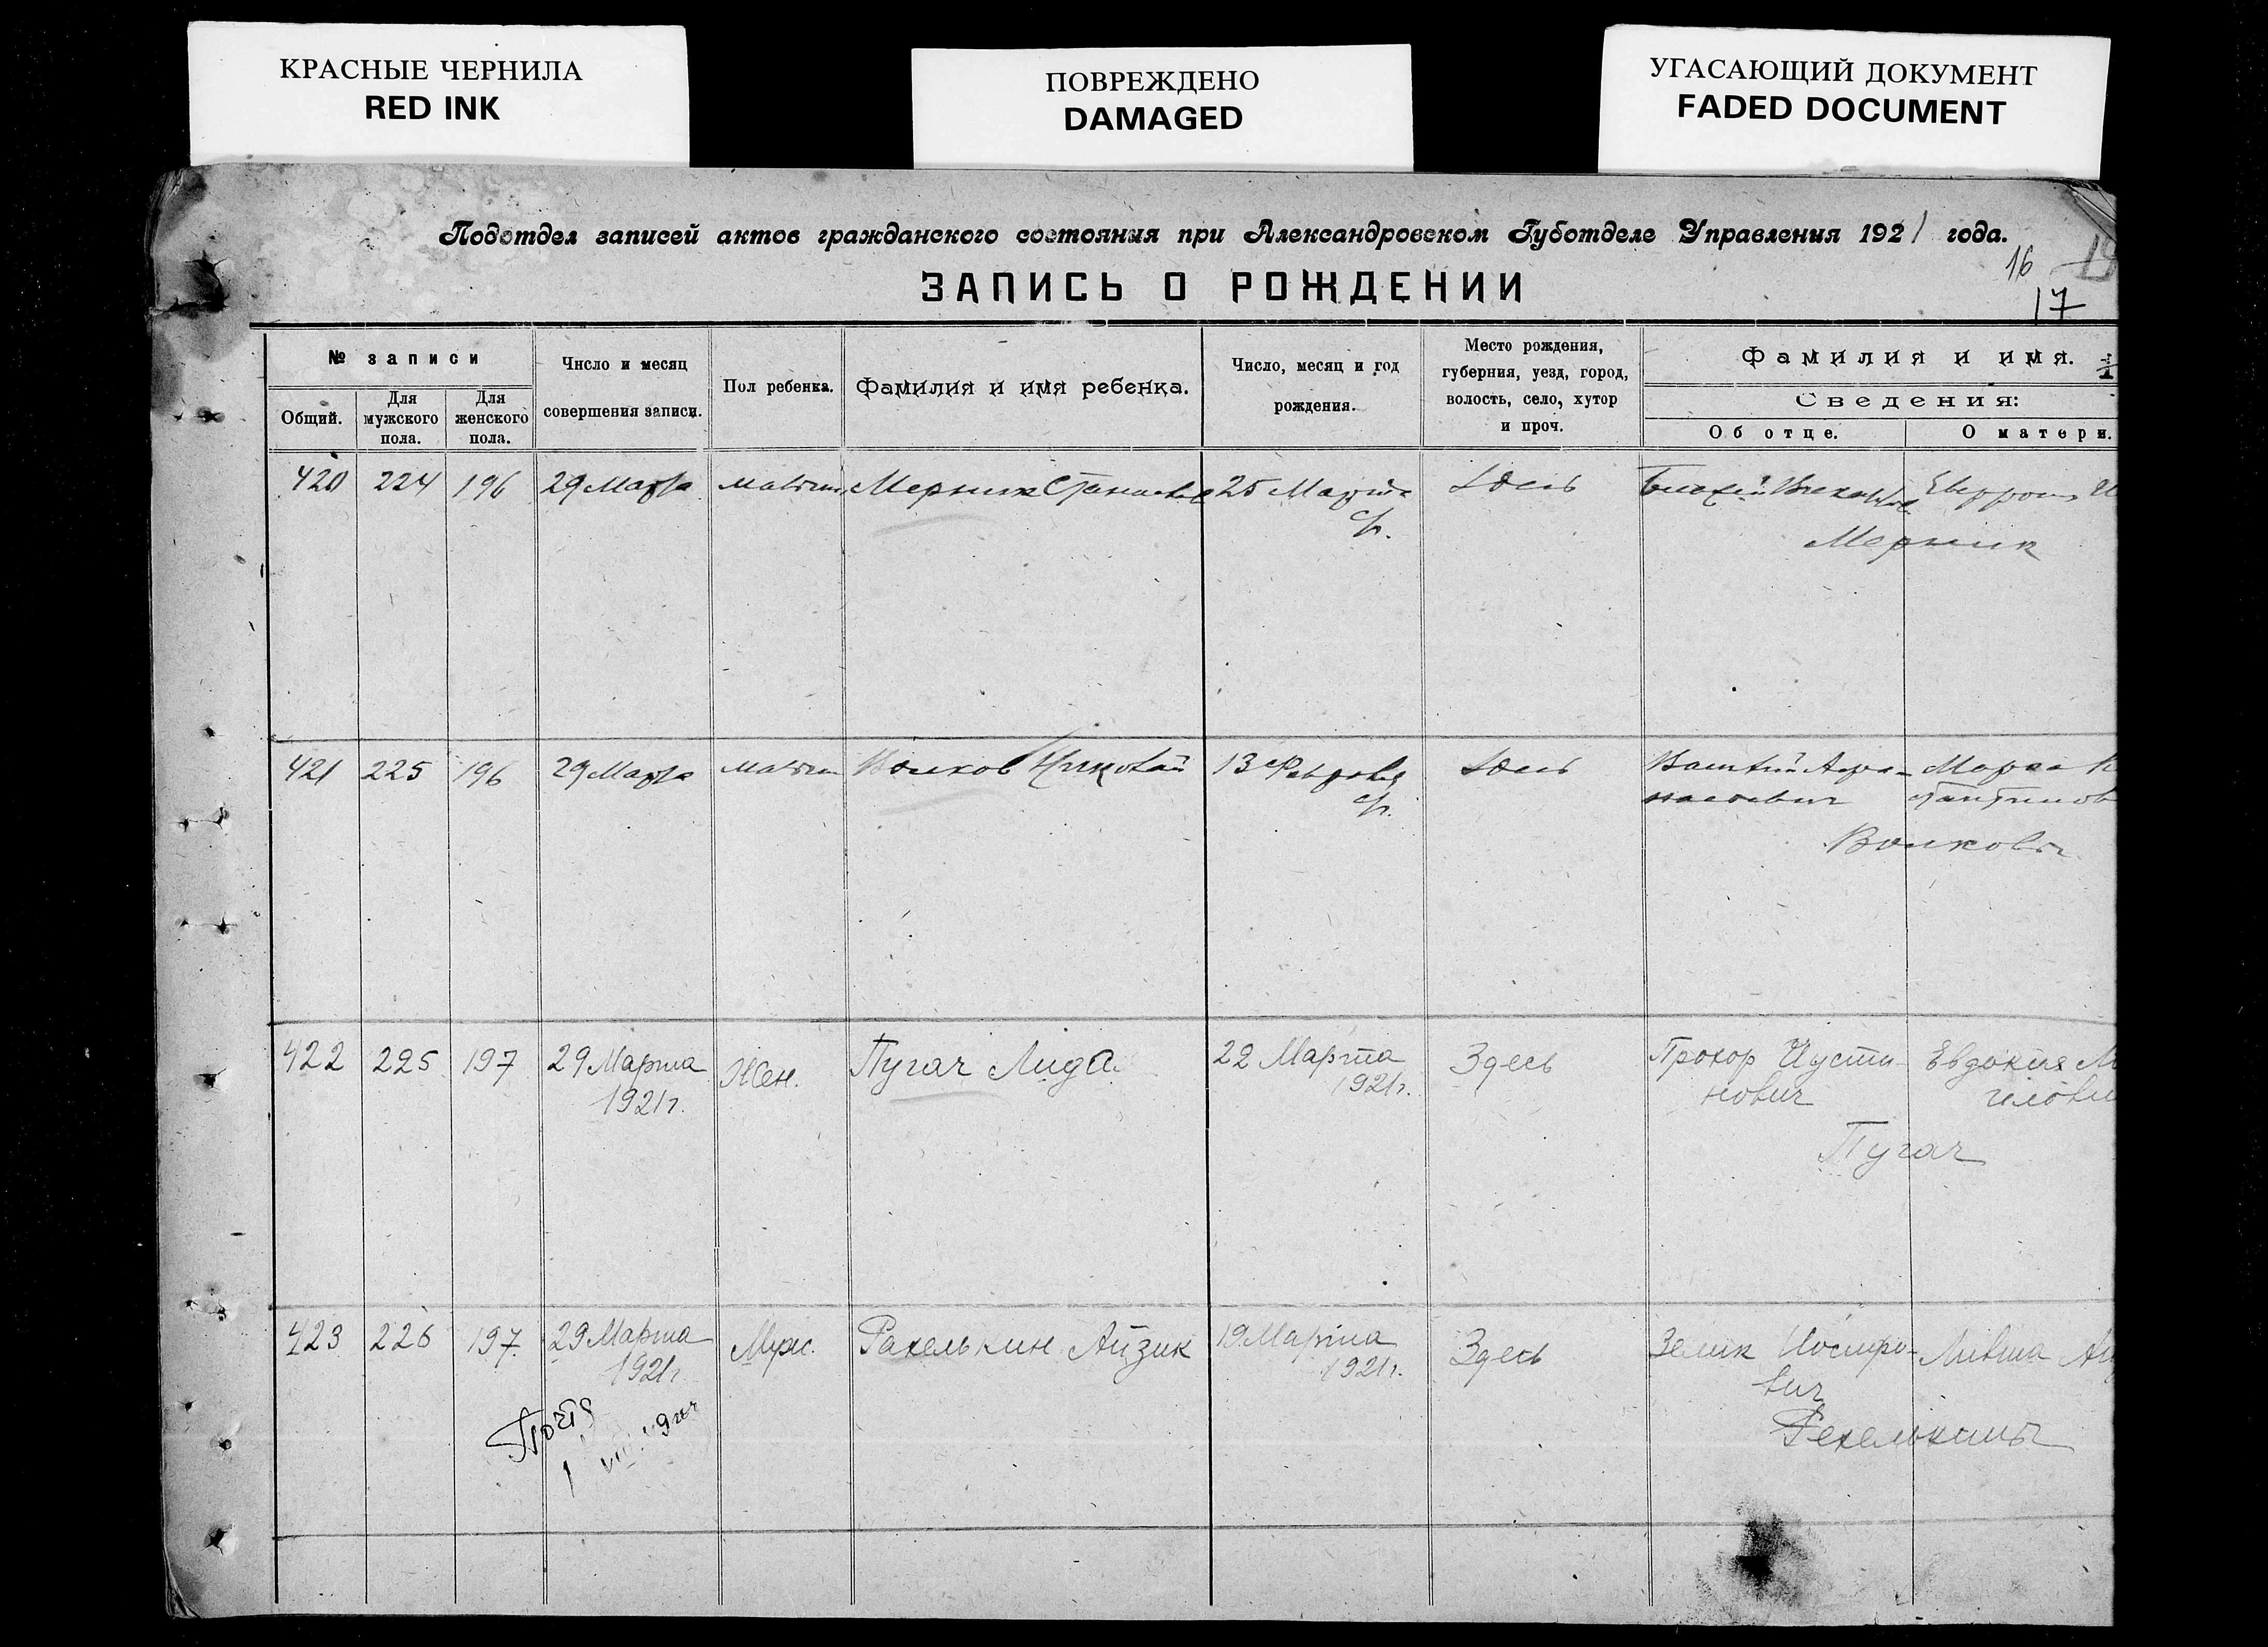 КРАСНЫЕ ЧЕРНИЛА
RED INK
ПОВРЕЖДЕНО
DAMAGED
УГАСАЮЩИЙ ДОКУМЕНТ
FADED DOCUMENT
Подотдел записей актов гражданского состояния при Александровском Губотделе Управления 1921 года.
16
17
ЗАПИСЬ О РОЖДЕНИИ
№ записи
Общий.
Для мужского пола.
Для женского пола.
Число и месяц совершения записи.
Пол ребенка.
Фамилия и имя ребенка.
Число, месяц и год рождения.
Место рождения, губерния, уезд, город, волость, село, хутор и проч.
Фамилия и имя.
Сведения:
Об отце.
О матери.
420 224 196 29 Марта Мерник 25 Марта Здесь
с/г.
Мерник
421 225 196 29 Марта Волков Николай 13 Февраля Здесь
с/г.
Волковы
422 225 197 29 Марта Жен. Пугач Лида 22 Марта Здесь Прохор Иусти- Евдокия
1921г. 1921г. нович
Пугач
423 226 197 29 Марта Муж. Рахелькин Айзик 19 Марта Здесь Зелик Иосифо-
1921г. 1921г. вич
Рехелькины